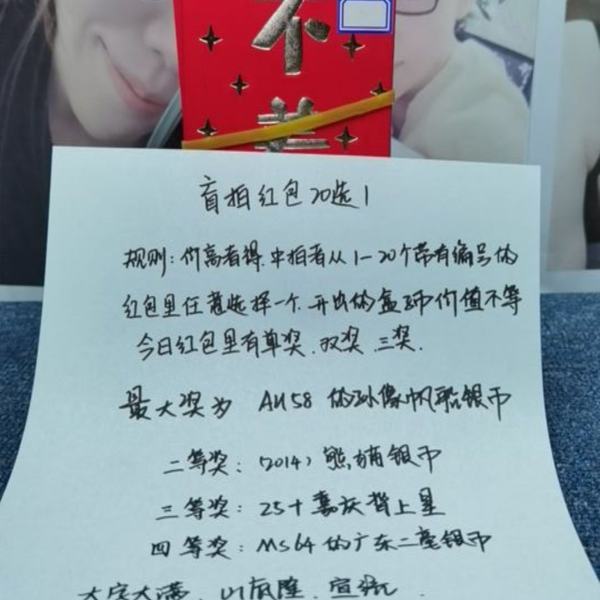 不
盲拍红包20选1
规则：价高者得.中拍者从1-20个带有编号的
红包里任意选择一个.开出的盒子币价值不等
今日红包里有单奖.双奖.三奖.
最大奖为 AU58 的孙像帆船银币
二等奖：(2014) 熊猫银币
三等奖：25十嘉庆背上星
四等奖：MS64的广东二毫银币
大字大满、山底隆、宣统